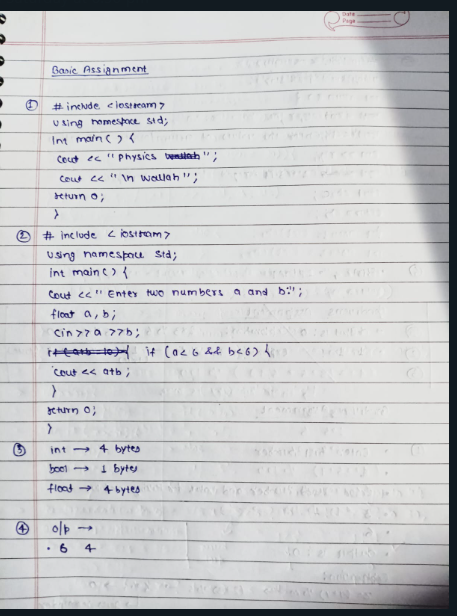 Date
Page
Basic Assignment
① # include <iostream>
using namespace std;
int main() {
cout << "Physics wallah";
cout << "\n Wallah";
return 0;
}
② # include <iostream>
using namespace std;
int main() {
cout << "Enter two numbers a and b:";
float a, b;
cin >> a >> b;
if (a < 6 && b < 6) {
cout << a+b;
}
return 0;
}
③ int → 4 bytes
bool → 1 bytes
float → 4 bytes
④ o/p →
. 6 4